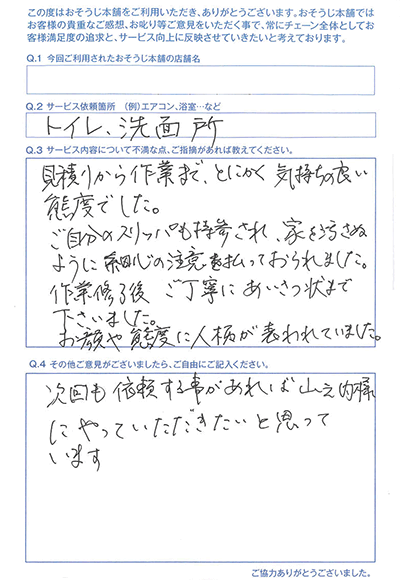 この度はおそうじ本舗をご利用いただき、ありがとうございます。おそうじ本舗では
お客様の貴重なご感想、お叱り等ご意見をいただく事で、常にチェーン全体としてお
客様満足度の追求と、サービス向上に反映させていきたいと考えております。
Q.1 今回ご利用されたおそうじ本舗の店舗名
Q.2 サービス依頼箇所 (例)エアコン、浴室…など
トイレ、洗面所
Q.3 サービス内容について不満な点、ご指摘があれば教えてください。
見積りから作業まで、とにかく気持ちの良い
態度でした。
ご自分のスリッパも持参され、家を汚さぬ
ように細心の注意を払っておられました。
作業修了後 ご丁寧にあいさつ状まで
下さいました。
お顔や態度に人柄が表われていました。
Q.4 その他ご意見がございましたら、ご自由にご記入ください。
次回も依頼する事があれば山之内様
にやっていただきたいと思って
います
ご協力ありがとうございました。